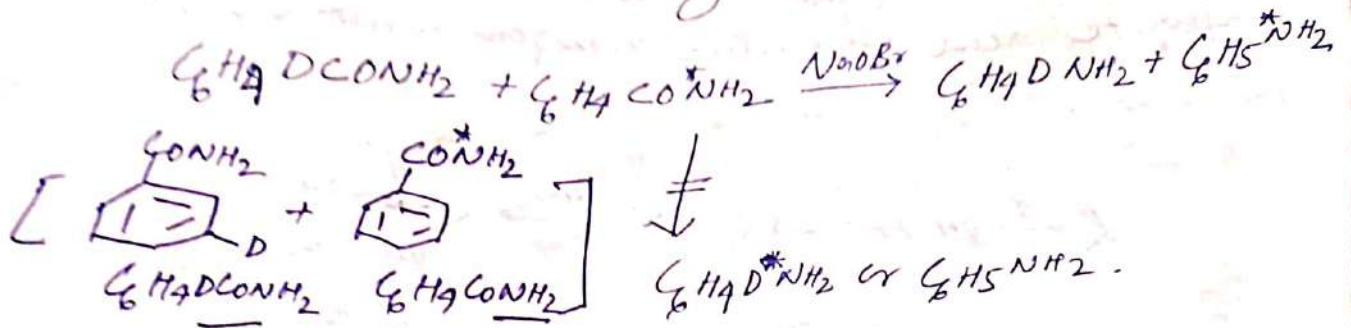 C6H4DCONH2 + C6H4CO*NH2 NaOBr C6H4DNH2 + C6H5*NH2
[ CONH2 + CO*NH2 ]
D
C6H4DCONH2 C6H4CONH2 C6H4D*NH2 or C6H5NH2.